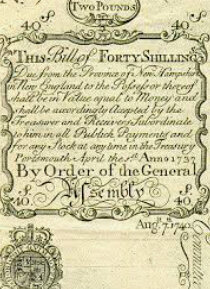 TWO POUNDS
40S 40S
THIS Bill of FORTY SHILLINGS
Due from the Province of New Hampshire
in New England to the Possessor thereof
shall be in Value equal to Money and
shall be accordingly accepted by the
Treasurer and Receivers Subordinate
to him in all Publick Payments and
for any Stock at any time in the Treasury
Portsmouth April the 1st Anno 1737
By Order of the General
S. 40. Assembly S. 40.
Aug. 7. 1740